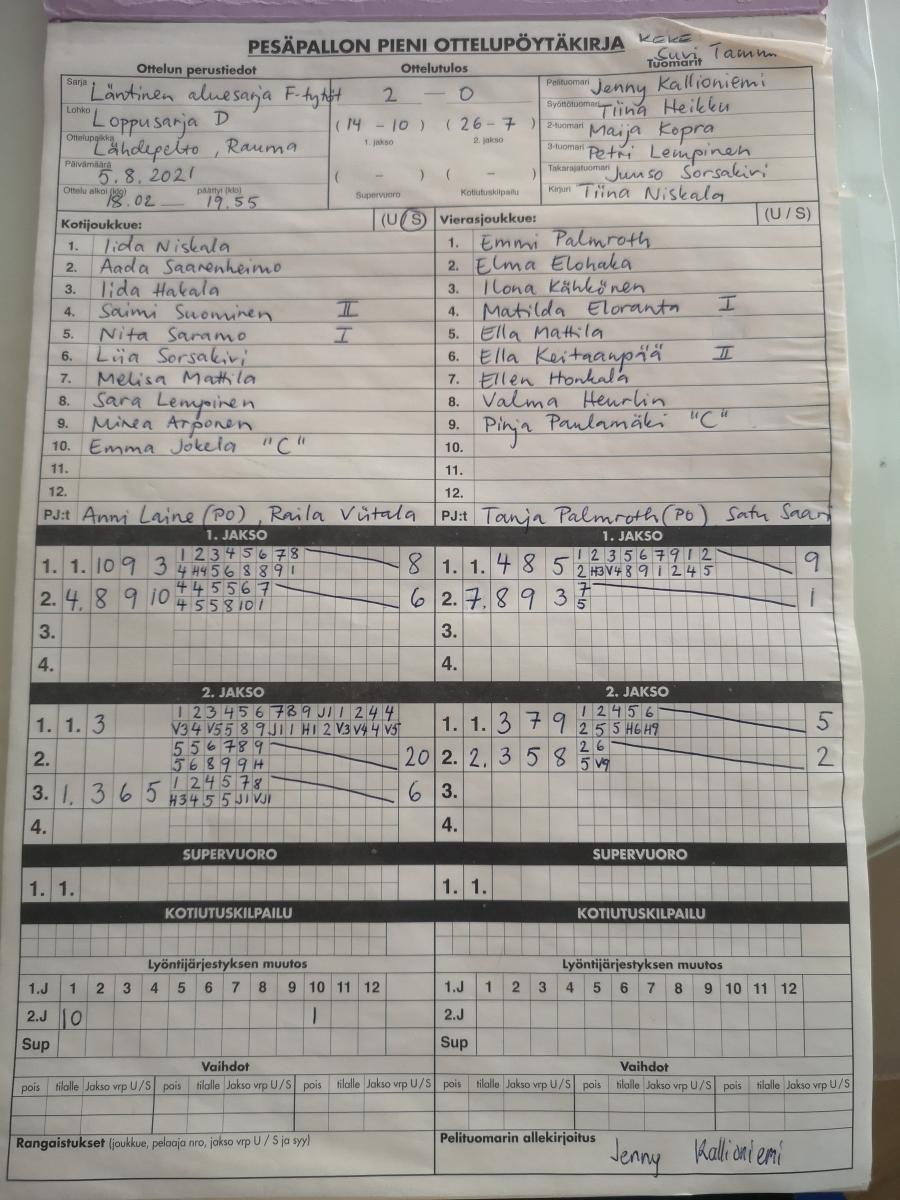 PESÄPALLON PIENI OTTELUPÖYTÄKIRJA KEKE
Suvi Tammi
Ottelun perustiedot Ottelutulos Tuomarit
Sarja Läntinen aluesarja F-tytöt 2 — 0 Pelituomari Jenny Kallioniemi
Lohko Loppusarja D (14 - 10) (26 - 7) Syöttötuomari Tiina Heikku
Ottelupaikka Lähdepelto, Rauma 1. jakso 2. jakso 2-tuomari Maija Kopra
3-tuomari Petri Lempinen
Päivämäärä 5.8.2021 ( - ) ( - ) Takarajatuomari Juuso Sorsakivi
Ottelu alkoi (klo) 18.02 — päättyi (klo) 19.55 Supervuoro Kotiutuskilpailu Kirjuri Tiina Niskala
Kotijoukkue: (U / S) Vierasjoukkue: (U / S)
1. Iida Niskala 1. Emmi Palmroth
2. Aada Saarenheimo 2. Elma Elohaka
3. Iida Hakala 3. Ilona Kähkönen
4. Saimi Suominen II 4. Matilda Eloranta I
5. Nita Saramo I 5. Ella Mattila
6. Liia Sorsakivi 6. Ella Keitaanpää II
7. Melisa Mattila 7. Ellen Honkala
8. Sara Lempinen 8. Valma Heurlin
9. Minea Arponen 9. Pinja Paulamäki "C"
10. Emma Jokela "C" 10.
11. 11.
12. 12.
PJ:t Anni Laine (PO), Raila Viitala PJ:t Tanja Palmroth (PO) Satu Saari
1. JAKSO 1. JAKSO
1. 1. 10 9 3 1 2 3 4 5 6 7 8 8 1. 1. 4 8 5 1 2 3 5 6 7 9 1 2 9
4 H4 5 6 8 8 9 1 2 H3 V4 8 9 1 2 4 5
2. 4. 8 9 10 4 4 5 5 6 7 6 2. 7. 8 9 3 7 1
4 5 5 8 10 1 5
3. 3.
4. 4.
2. JAKSO 2. JAKSO
1. 1. 3 1 2 3 4 5 6 7 8 9 J1 1 2 4 4 1. 1. 3 7 9 1 2 4 5 6 5
V3 4 V5 5 8 9 J1 1 H1 2 V3 V4 4 V5 2 5 5 H6 H9
2. 5 5 6 7 8 9 20 2. 2. 3 5 8 2 6 2
5 6 8 9 9 H 5 V9
3. 1. 3 6 5 1 2 4 5 7 8 6 3.
H3 4 5 5 J1 VJ1
4. 4.
SUPERVUORO SUPERVUORO
1. 1. 1. 1.
KOTIUTUSKILPAILU KOTIUTUSKILPAILU
Lyöntijärjestyksen muutos Lyöntijärjestyksen muutos
1.J 1 2 3 4 5 6 7 8 9 10 11 12 1.J 1 2 3 4 5 6 7 8 9 10 11 12
2.J 10 1 2.J
Sup Sup
Vaihdot Vaihdot
pois tilalle Jakso vrp U/S pois tilalle Jakso vrp U/S pois tilalle Jakso vrp U/S pois tilalle Jakso vrp U/S pois tilalle Jakso vrp U/S pois tilalle Jakso vrp U/S
Rangaistukset (joukkue, pelaaja nro, jakso vrp U / S ja syy) Pelituomarin allekirjoitus
Jenny Kallioniemi